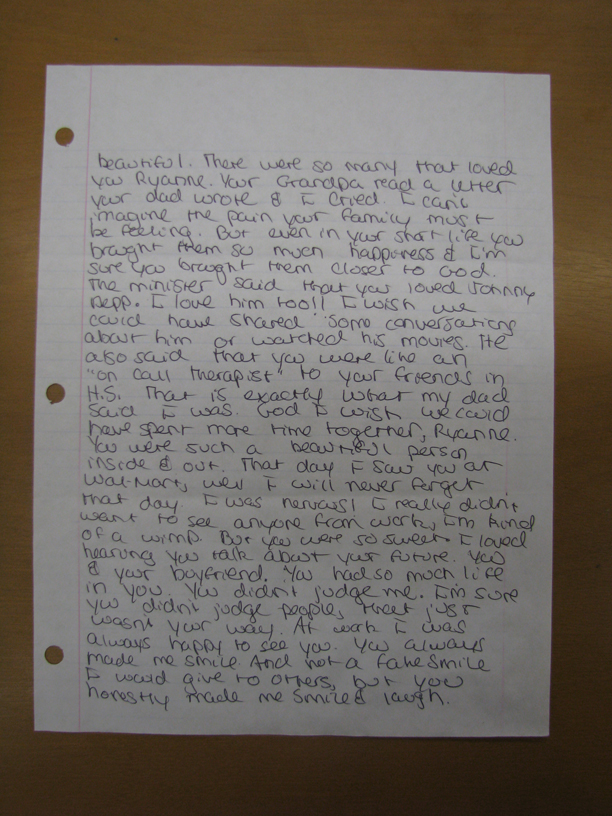 beautiful. There were so many that loved
you Ryanne. Your Grandpa read a letter
your dad wrote & I cried. I can't
imagine the pain your family must
be feeling. But even in your short life you
brought them so much happiness & I'm
sure you brought them closer to God.
The minister said that you loved Johnny
Depp. I love him too!! I wish we
could have shared some conversations
about him or watched his movies. He
also said that you were like an
"on call therapist" to your friends in
H.S. That is exactly what my dad
said I was. God I wish we could
have spent more time together, Ryanne.
You were such a beautiful person
inside & out. That day I saw you at
Wal-Mart, well I will never forget
that day. I was nervous! I really didn't
want to see anyone from work, I'm kind
of a wimp. But you were so sweet. I loved
hearing you talk about your future. You
& your boyfriend. You had so much life
in you. You didn't judge me. I'm sure
you didn't judge people, that just
wasn't your way. At work I was
always happy to see you. You always
made me smile. And not a fake smile
I would give to others, but you
honestly made me smile & laugh.